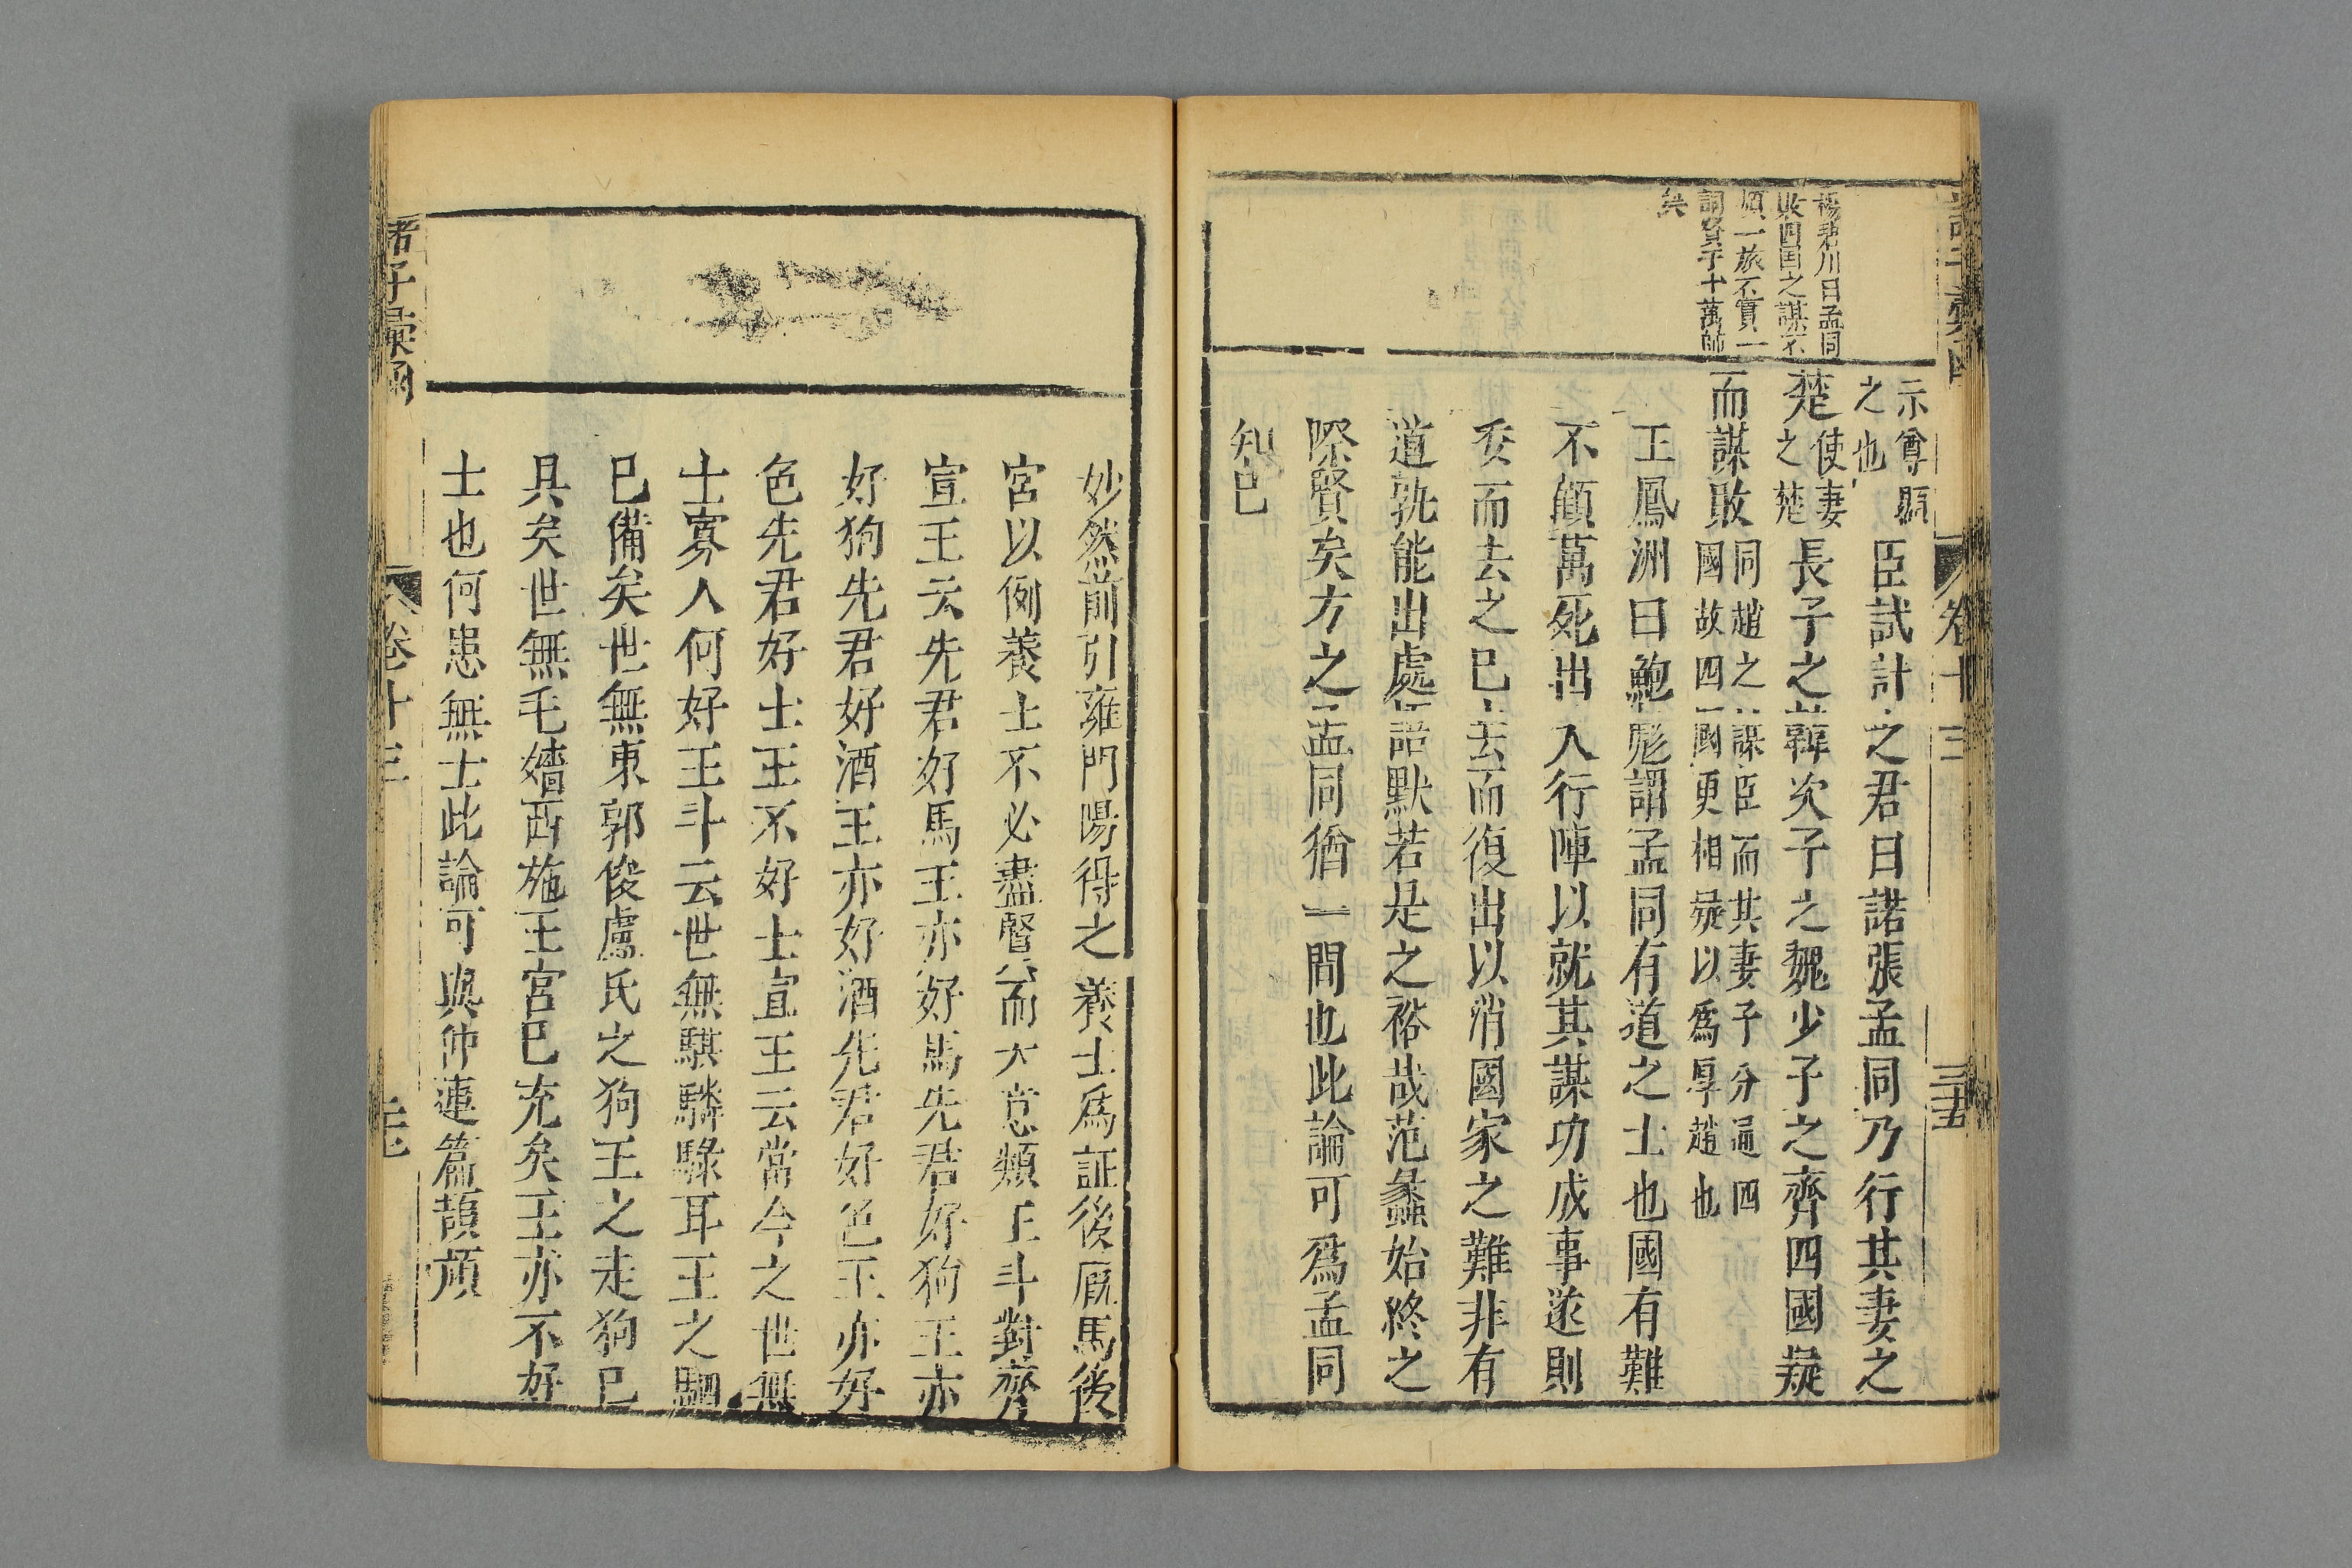 楊碧川曰孟同
敗四国之謀不
煩一旅不實一
詞賢于十萬師
矣
示尊顯
之也
臣試計之君曰諾張孟同乃行其妻之
楚
使妻
之楚
長子之韓次子之魏少子之齊四國疑
而謀敗
同趙之謀臣而其妻子分適四
國故四國更相疑以爲厚趙也
王鳳洲曰鮑彪謂孟同有道之士也國有難
不顧萬死出入行陣以就其謀功成事遂則
委而去之已去而復出以消國家之難非有
道孰能出處語默若是之裕哉范蠡始終之
際賢矣方之孟同猶一間也此論可爲孟同
知已
卷十三
三十五
妙然前引雍門陽得之養士爲証後厩馬後
宮以例養士不必盡賢矣而大意類王斗對齊
宣王云先君好馬王亦好馬先君好狗王亦
好狗先君好酒王亦好酒先君好色王亦好
色先君好士王不好士宣王云當今之世無
士寡人何好王斗云世無騏驎騄耳王之駟
已備矣世無東郭俊盧氏之狗王之走狗已
具矣世無毛嬙西施王宮已充矣王亦不好
士也何患無士此論可與仲連篇頡頏
諸子彙函
卷十三